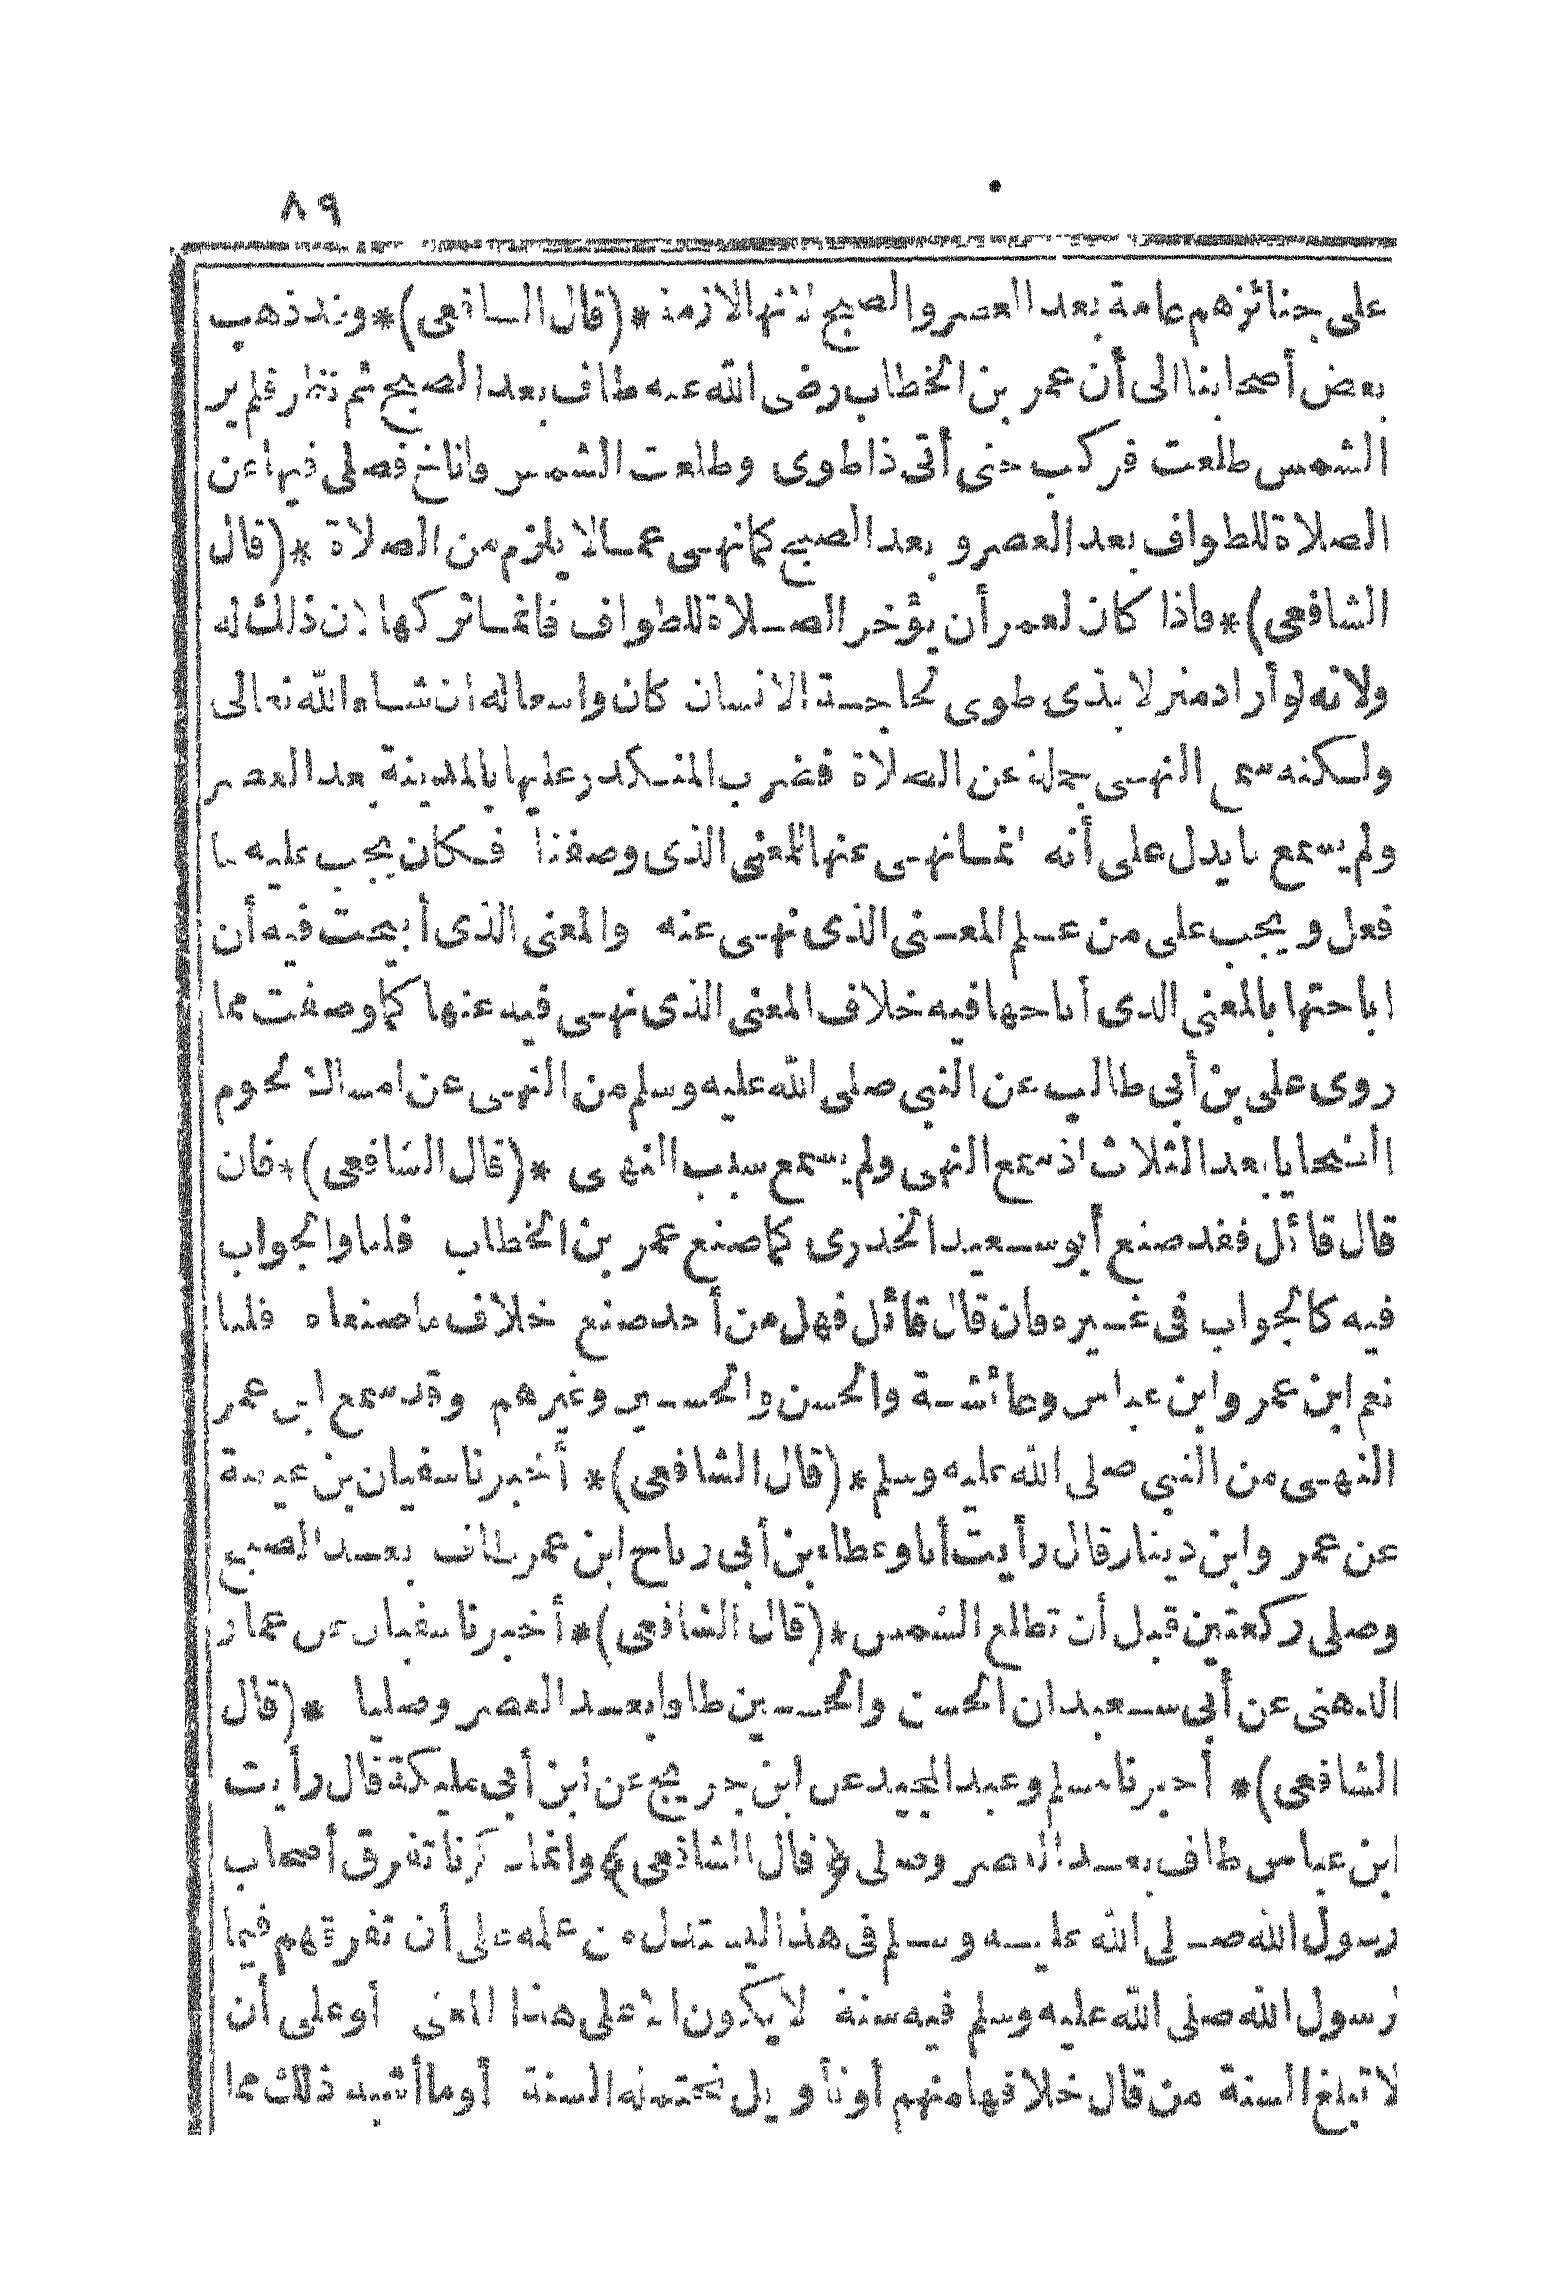 ٨٩
على جنائزهم عامة بعد العصر والصبح لأنها لازمة *(قال الشافعى)* وقد ذهب
بعض أصحابنا الى أن عمر بن الخطاب رضى الله عنه طاف بعد الصبح ثم نظر فلم ير
الشمس طلعت فركب حتى أتى ذا طوى وطلعت الشمس فاناخ فصلى فنهاه عن
الصلاة للطواف بعد العصر و بعد الصبح كما نهى عما لا يلزم من الصلاة *(قال
الشافعى)* فاذا كان لعمر أن يؤخر الصلاة للطواف فانما تركها لان ذلك له
ولانه لو أراد منزلا بذى طوى لحاجة الانسان كان واسعا له ان شاء الله تعالى
ولكنه سمع النهى جملة عن الصلاة فضرب المنكدر عليها بالمدينة بعد العصر
ولم يسمع ما يدل على أنه انما نهى عنها للمعنى الذى وصفنا فكان يجب عليه ما
فعل و يجب على من علم المعنى الذى نهى عنه والمعنى الذى أبيحت فيه أن
اباحتها بالمعنى الذى أباحها فيه خلاف المعنى الذى نهى فيه عنها كما وصفت مما
روى على بن أبى طالب عن النبي صلى الله عليه وسلم من النهى عن امساك لحوم
الضحايا بعد الثلاث اذ سمع النهى ولم يسمع سبب النهى *(قال الشافعى)* فان
قال قائل فقد صنع أبو سعيد الخدرى كما صنع عمر بن الخطاب قلنا والجواب
فيه كالجواب فى غيره فان قال قائل فهل من أحد صنع خلاف ما صنعاه قلنا
نعم ابن عمر وابن عباس وعائشة والحسن والحسين وغيرهم وقد سمع ابن عمر
النهى من النبي صلى الله عليه وسلم *(قال الشافعى)* أخبرنا سفيان بن عيينة
عن عمر وابن دينار قال رأيت أنا وعطاء بن أبى رباح ابن عمر طاف بعد الصبح
وصلى ركعتين قبل أن تطلع الشمس *(قال الشافعى)* أخبرنا سفيان عن عمار
الدهنى عن أبى سعيد ان الحسن والحسين طافا بعد العصر وصليا *(قال
الشافعى)* أخبرنا مسلم وعبد المجيد عن ابن جريج عن ابن أبى مليكة قال رأيت
ابن عباس طاف بعد العصر وصلى *(قال الشافعى)* وانما ذكرنا تفرق أصحاب
رسول الله صلى الله عليه وسلم فى هذا ليستدل من علمه على أن تفرقهم فيما
لرسول الله صلى الله عليه وسلم فيه سنة لا يكون الا على هذا المعنى أو على أن
لا تبلغ السنة من قال خلافها منهم أو تأويل تحتمله السنة أو ما أشبه ذلك مما